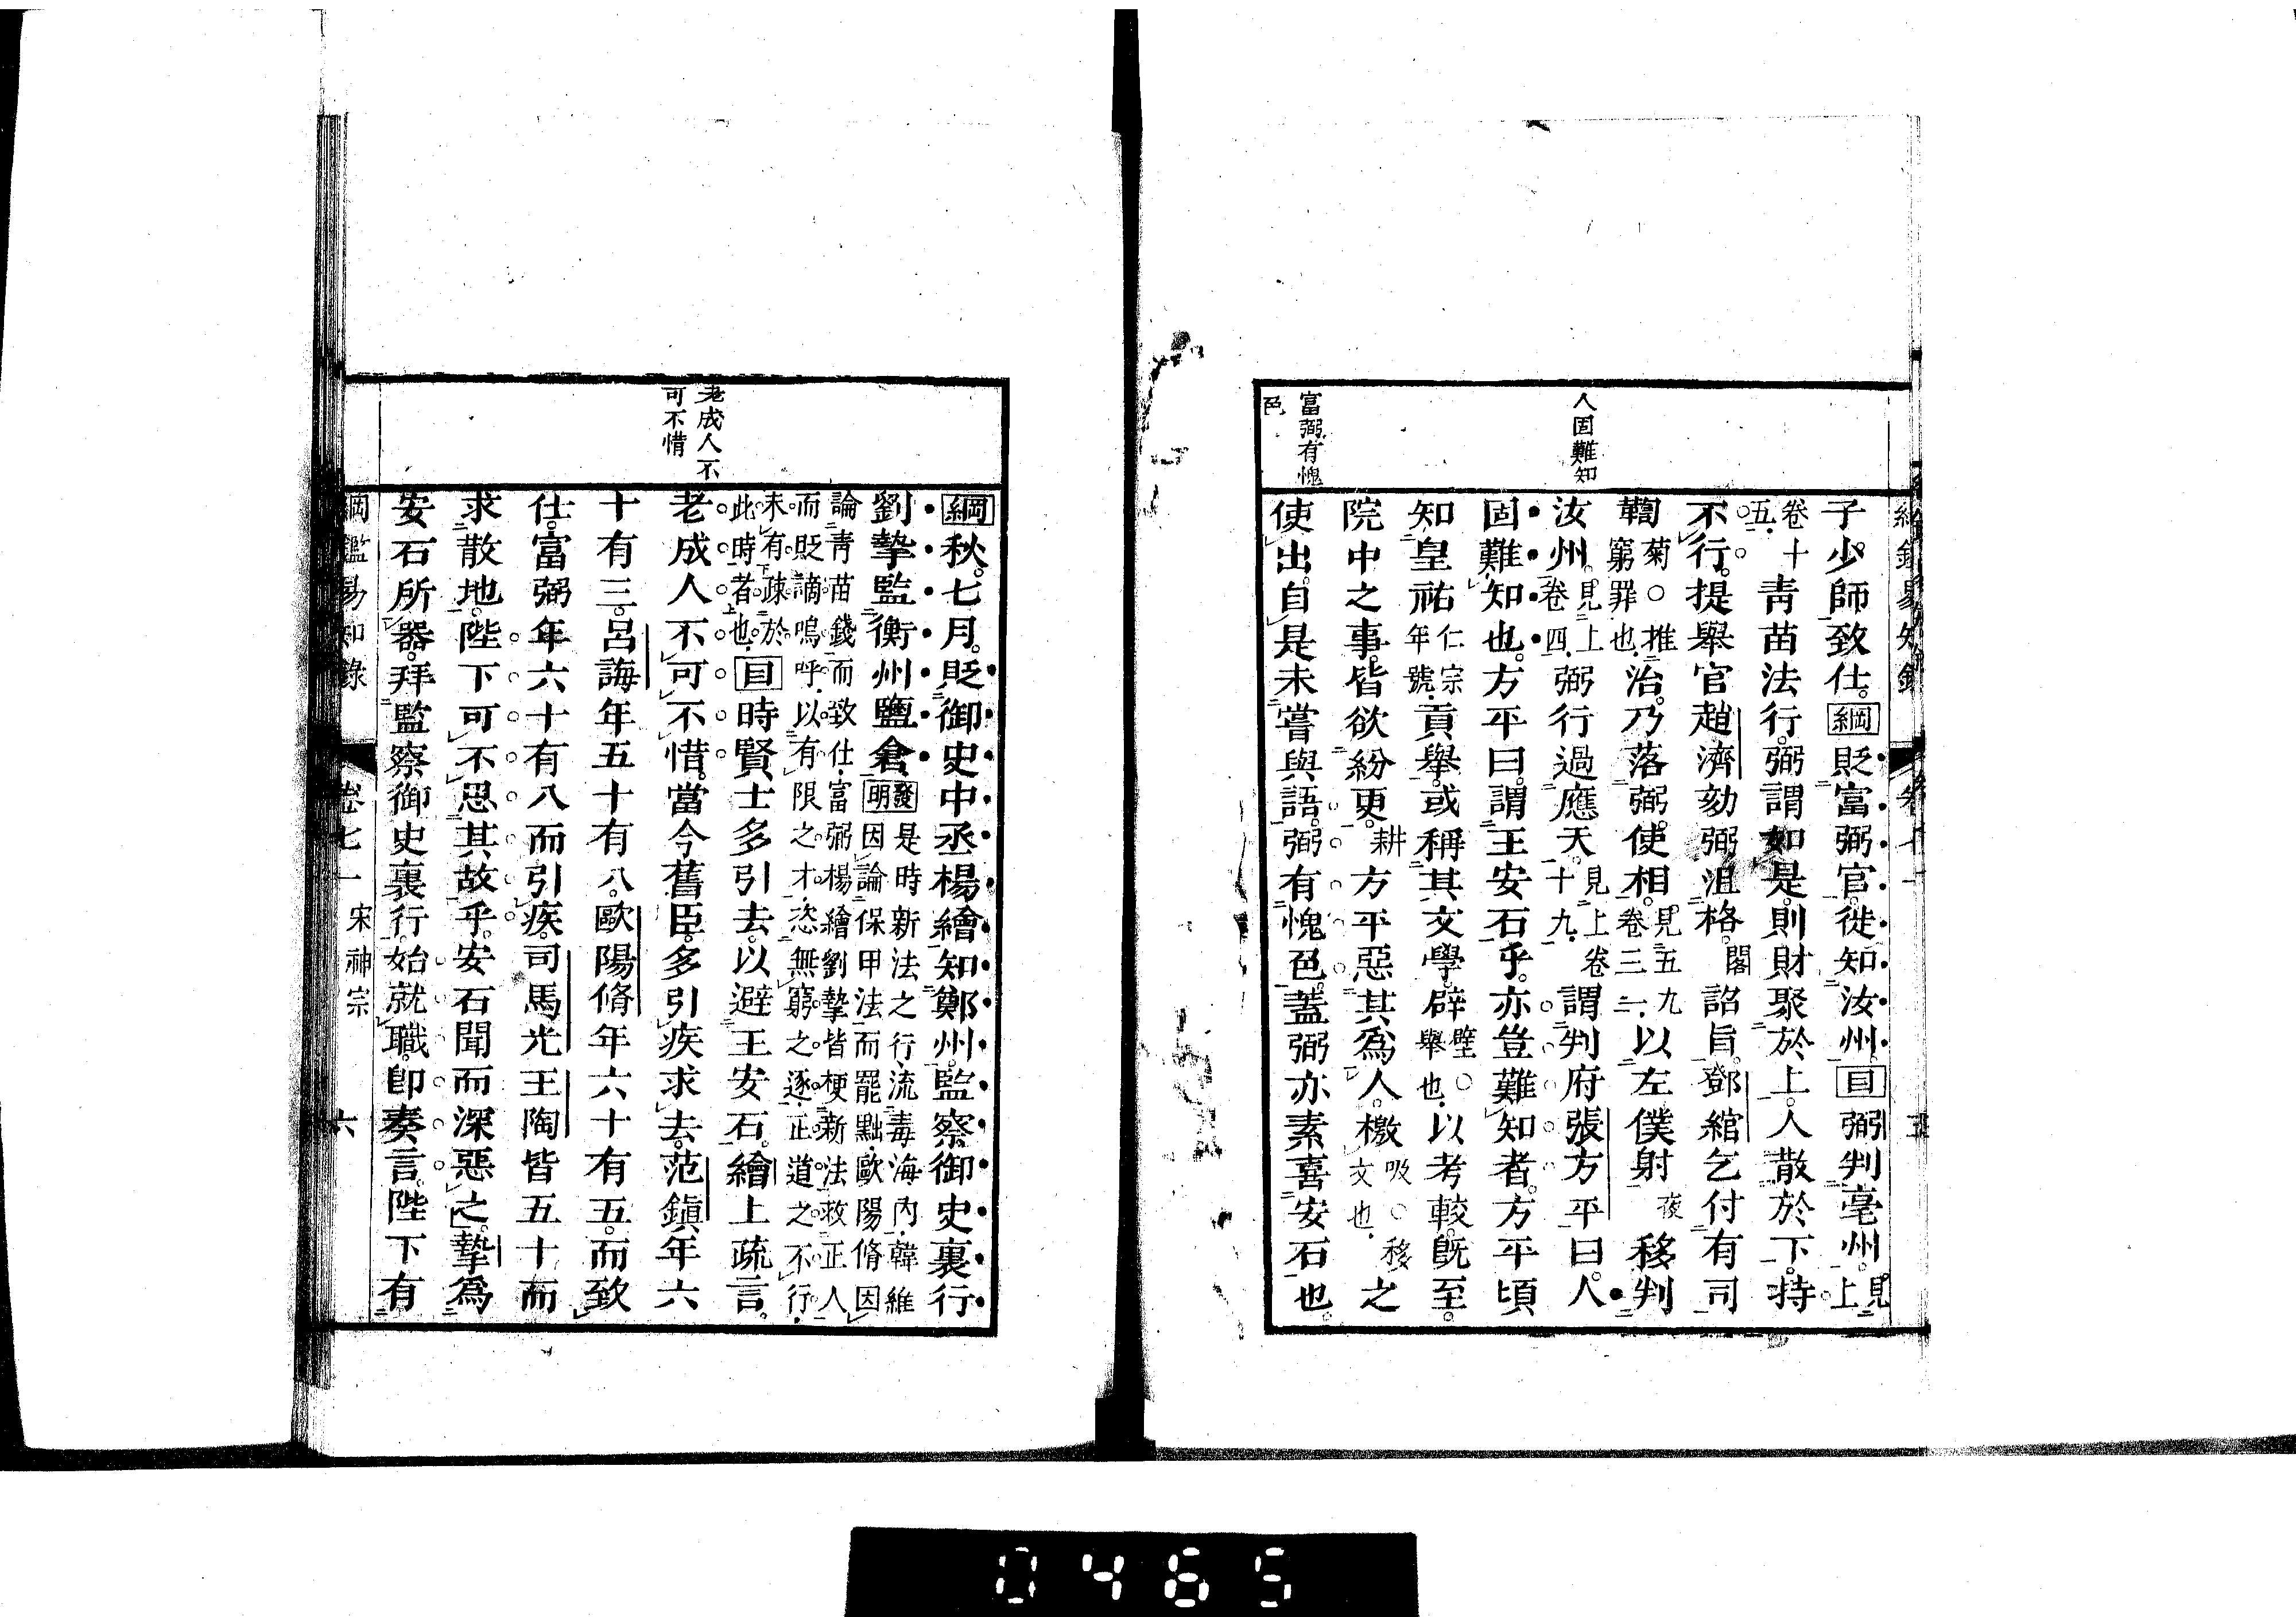 人固難知
富弼有愧
色
子少師致仕。綱貶富弼官。徙知汝州。目弼判亳州。見上
卷十五。青苗法行。弼謂如是。則財聚於上。人散於下。持
不行。提舉官趙濟劾弼沮格。閣詔旨。鄧綰乞付有司
鞫菊○推窮罪也。治。乃落弼。使相。見五九卷三一。以左僕射夜移判
汝州。見上卷四。弼行過應天。見上卷十九。謂判府張方平曰。人
固難知也。方平曰。謂王安石乎。亦豈難知者。方平頃
知皇祐仁宗年號。貢舉。或稱其文學。辟壁○舉也。以考較。既至。
院中之事。皆欲紛更。耕方平惡其爲人。檄吸○移文也。之
使出。自是未嘗與語。弼有愧色。蓋弼亦素喜安石也。
老成人不
可不惜
綱秋。七月。貶御史中丞楊繪知鄭州。監察御史裏行
劉摯監衡州鹽倉發明是時新法之行。流毒海內。韓維因論保甲法而罷黜。歐陽脩因
論青苗錢而致仕。富弼楊繪劉摯皆梗新法。救正人而貶謫。嗚呼。以有限之才。恣無窮之逐。正道之不行。
未有疎於此時者也。目時賢士多引去。以避王安石。繪上疏言。
老成人不可不惜。當今舊臣。多引疾求去。范鎭年六
十有三。呂誨年五十有八。歐陽脩年六十有五。而致
仕。富弼年六十有八而引疾。司馬光王陶皆五十而
求散地。陛下可不思其故乎。安石聞而深惡之。摯爲
安石所器。拜監察御史裏行。始就職。卽奏言。陛下有
綱鑑易知錄 卷七一 宋神宗 六